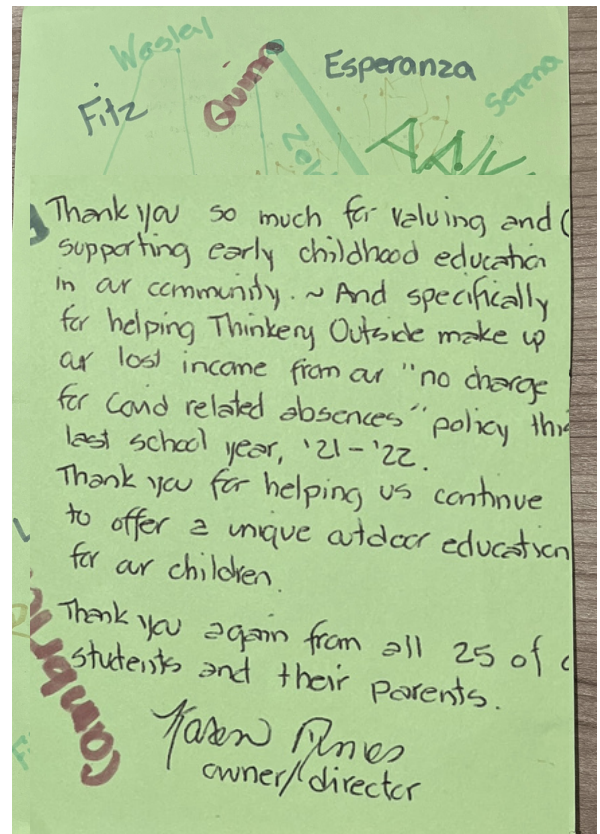 Wesley
Fitz
Quinn
Esperanza
Serena
Thank you so much for valuing and
supporting early childhood education
in our community. ~ And specifically
for helping Thinkery Outside make up
our lost income from our "no charge
for Covid related absences" policy this
last school year, '21-'22.
Thank you for helping us continue
to offer a unique outdoor education
for our children.
Thank you again from all 25 of
students and their parents.
Karen
owner/director